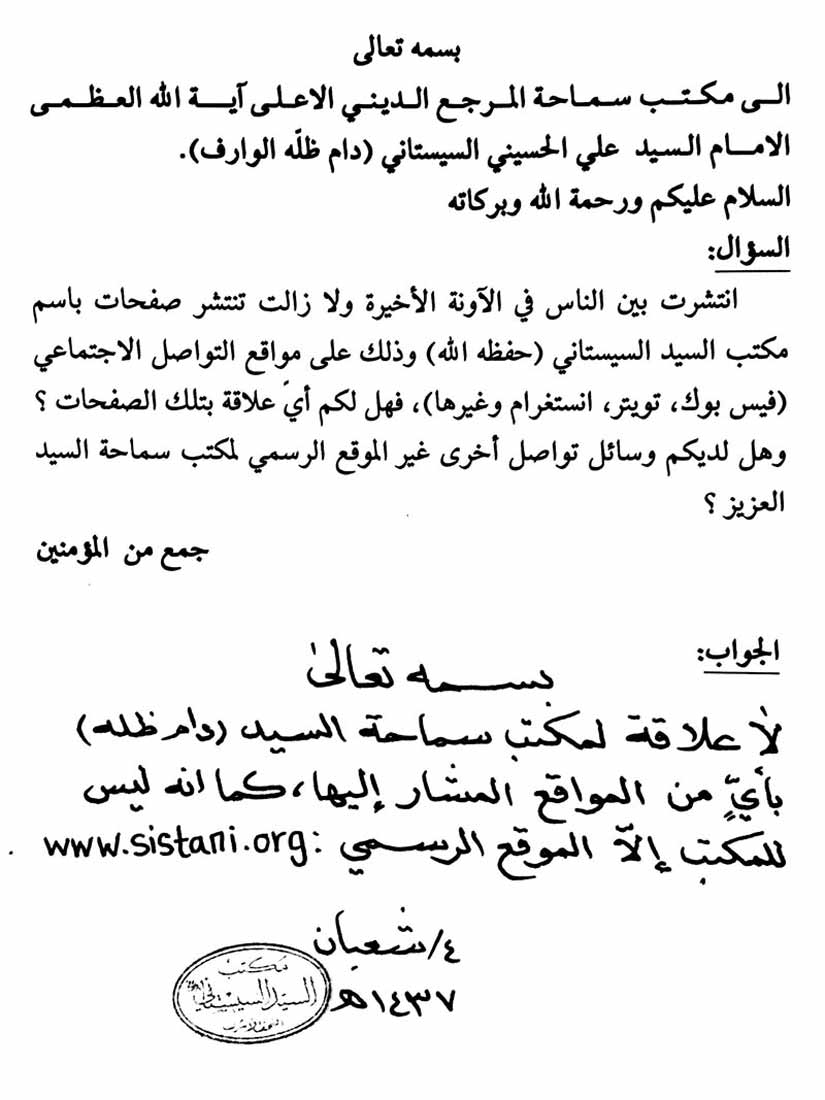 بسمه تعالى
الى مكتب سماحة المرجع الديني الاعلى آية الله العظمى
الامام السيد علي الحسيني السيستاني (دام ظلّه الوارف).
السلام عليكم ورحمة الله وبركاته
السؤال:
انتشرت بين الناس في الآونة الأخيرة ولا زالت تنتشر صفحات باسم
مكتب السيد السيستاني (حفظه الله) وذلك على مواقع التواصل الاجتماعي
(فيس بوك، تويتر، انستغرام وغيرها)، فهل لكم أيّ علاقة بتلك الصفحات ؟
وهل لديكم وسائل تواصل أخرى غير الموقع الرسمي لمكتب سماحة السيد
العزيز ؟
جمع من المؤمنين
الجواب:
بسمه تعالى
لا علاقة لمكتب سماحة السيد (دام ظله)
بأيٍّ من المواقع المشار إليها، كما انه ليس
للمكتب إلاّ الموقع الرسمي : www.sistani.org
٤/شعبان
١٤٣٧هـ
مكتب
السيد السيستاني
النجف الاشرف